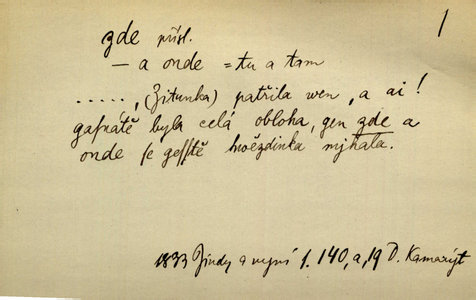 1
zde přísl.
— a onde = tu a tam
....., (Zitunka) patřila wen, a ai!
gasnátě byla celá obloha, gen zde a
onde se gesstě hwězdinka mjhala.
1833 Jindy a nyní s. 140, a, 19 D. Kamarýt